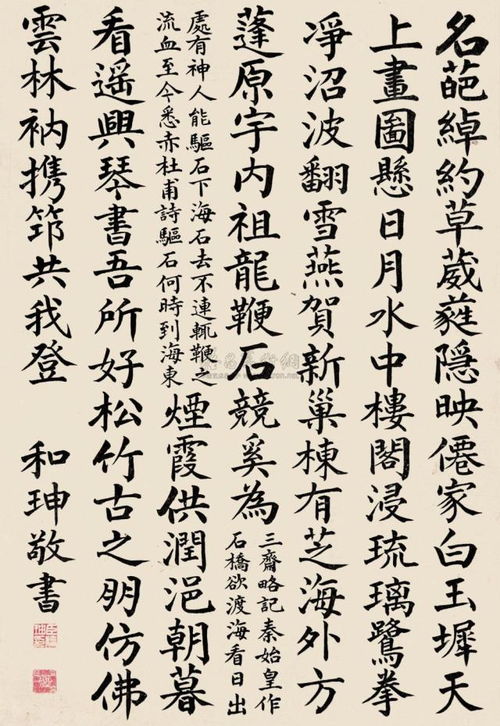 名葩綽約草葳蕤隱映僊家白玉墀天
上畫圖懸日月水中樓閣浸琉璃鷺拳
凈沼波翻雪燕賀新巢棟有芝海外方
蓬原宇內祖龍鞭石競奚為
三齋略記秦始皇作
石橋欲渡海看日出
處有神人能驅石下海石去不連輒鞭之
流血至今悉赤杜甫詩驅石何時到海東
煙霞供潤浥朝暮
看遙興琴書吾所好松竹古之朋仿佛
雲林衲携筇共我登
和珅敬書